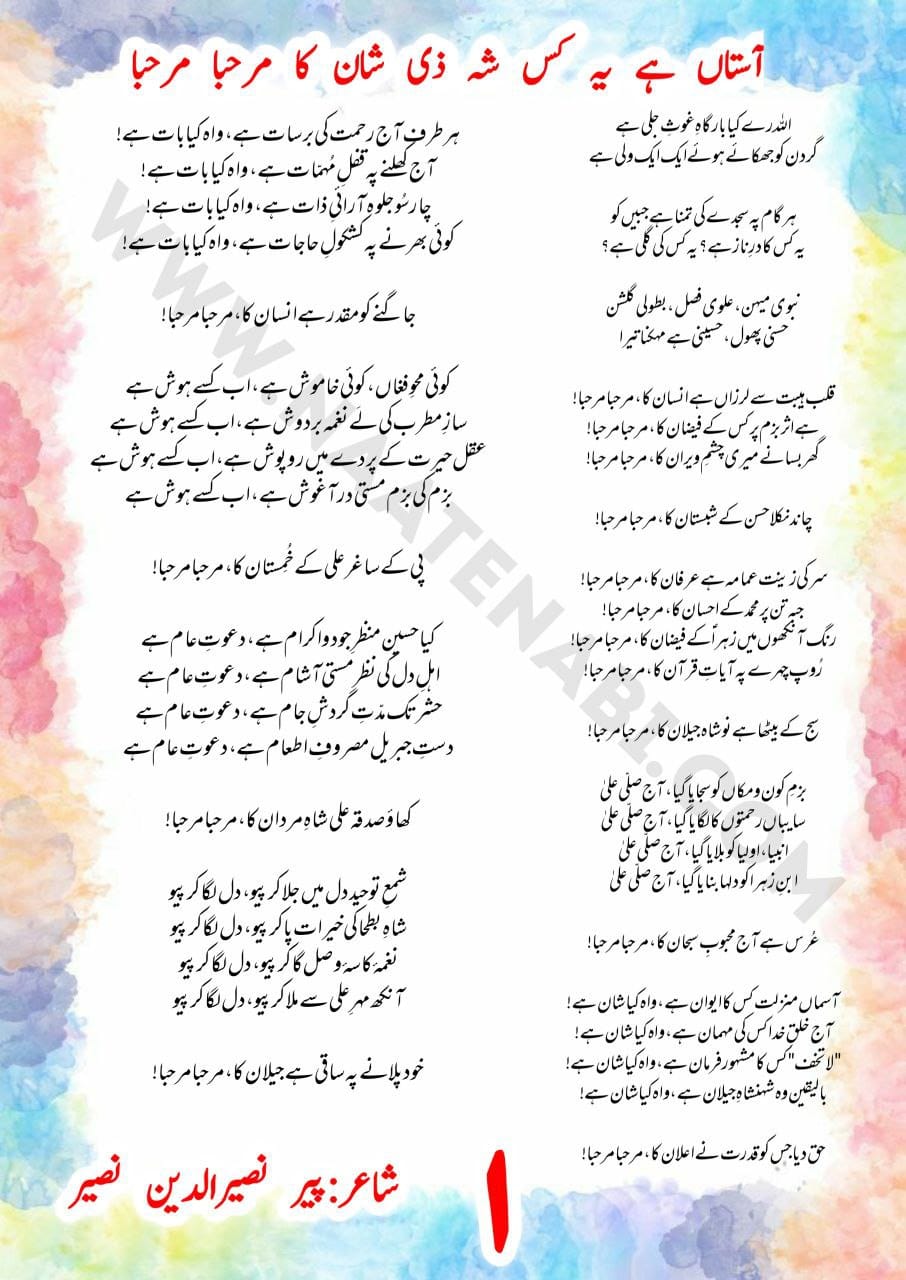 آستاں ہے یہ کس شہ ذی شان کا مرحبا مرحبا
اللہ رے کیا بارگاہِ غوثِ جلی ہے
گردن کو جھکائے ہوئے ایک ایک ولی ہے
ہر گام پہ سجدے کی تمنا ہے جبیں کو
یہ کس کا درِ ناز ہے؟ یہ کس کی گلی ہے؟
نبوی مینھ، علوی فصل، بطولی گلشن
حسنی پھول، حسینی ہے مہکنا تیرا
قلب ہیبت سے لرزاں ہے انسان کا، مرحبا مرحبا!
ہے اثر بزم پر کس کے فیضان کا، مرحبا مرحبا!
گھر بسانے میری چشمِ ویران کا، مرحبا مرحبا!
چاند نکلا حسن کے شبستان کا، مرحبا مرحبا!
سر کی زینت عمامہ ہے عرفان کا، مرحبا مرحبا!
جبہ تن پر محمد کے احسان کا، مرحبا مرحبا!
رنگ آنکھوں میں زہراؑ کے فیضان کا، مرحبا مرحبا!
رُوپ چہرے پہ آیاتِ قرآن کا، مرحبا مرحبا!
سج کے بیٹھا ہے نوشاہ جیلان کا، مرحبا مرحبا!
بزمِ کون و مکاں کو سجایا گیا، آج صلّی علیٰ
سایباں رحمتوں کا لگایا گیا، آج صلّی علیٰ
انبیا، اولیا کو بلایا گیا، آج صلّی علیٰ
ابنِ زہرا کو دلہا بنایا گیا، آج صلّی علیٰ
عُرس ہے آج محبوبِ سبحان کا، مرحبا مرحبا!
آسماں منزلت کس کا ایوان ہے، واہ کیا شان ہے!
آج خلقِ خدا کس کی مہمان ہے، واہ کیا شان ہے!
"لا تخف" کس کا مشہور فرمان ہے، واہ کیا شان ہے!
بالیقین وہ شہنشاہِ جیلان ہے، واہ کیا شان ہے!
حق دیا جس کو قدرت نے اعلان کا، مرحبا مرحبا!
ہر طرف آج رحمت کی برسات ہے، واہ کیا بات ہے!
آج کھلنے پہ قفلِ مُہمّات ہے، واہ کیا بات ہے!
چار سُو جلوہ آرائیِ ذات ہے، واہ کیا بات ہے!
کوئی بھرنے پہ کشکولِ حاجات ہے، واہ کیا بات ہے!
جاگنے کو مقدر ہے انسان کا، مرحبا مرحبا!
کوئی محوِ فغاں، کوئی خاموش ہے، اب کسے ہوش ہے
سازِ مطرب کی لَے نغمہ بر دوش ہے، اب کسے ہوش ہے
عقل حیرت کے پردے میں روپوش ہے، اب کسے ہوش ہے
بزم کی بزم مستی در آغوش ہے، اب کسے ہوش ہے
پی کے ساغر علی کے خُمِستان کا، مرحبا مرحبا!
کیا حسیں منظرِ جود و اکرام ہے، دعوتِ عام ہے
اہلِ دل کی نظر مستی آشام ہے، دعوتِ عام ہے
حشر تک مدّتِ گردشِ جام ہے، دعوتِ عام ہے
دستِ جبریل مصروفِ اطعام ہے، دعوتِ عام ہے
کھاؤ صدقہ علی شاہِ مردان کا، مرحبا مرحبا!
شمعِ توحید دل میں جلا کر پیو، دل لگا کر پیو
شاہِ بطحا کی خیرات پا کر پیو، دل لگا کر پیو
نغمۂ کاسۂ وصل گا کر پیو، دل لگا کر پیو
آنکھ مہرِ علی سے ملا کر پیو، دل لگا کر پیو
خود پلانے پہ ساقی ہے جیلان کا، مرحبا مرحبا!
شاعر: پیر نصیر الدین نصیر
۱
WWW.NAATENABI.COM